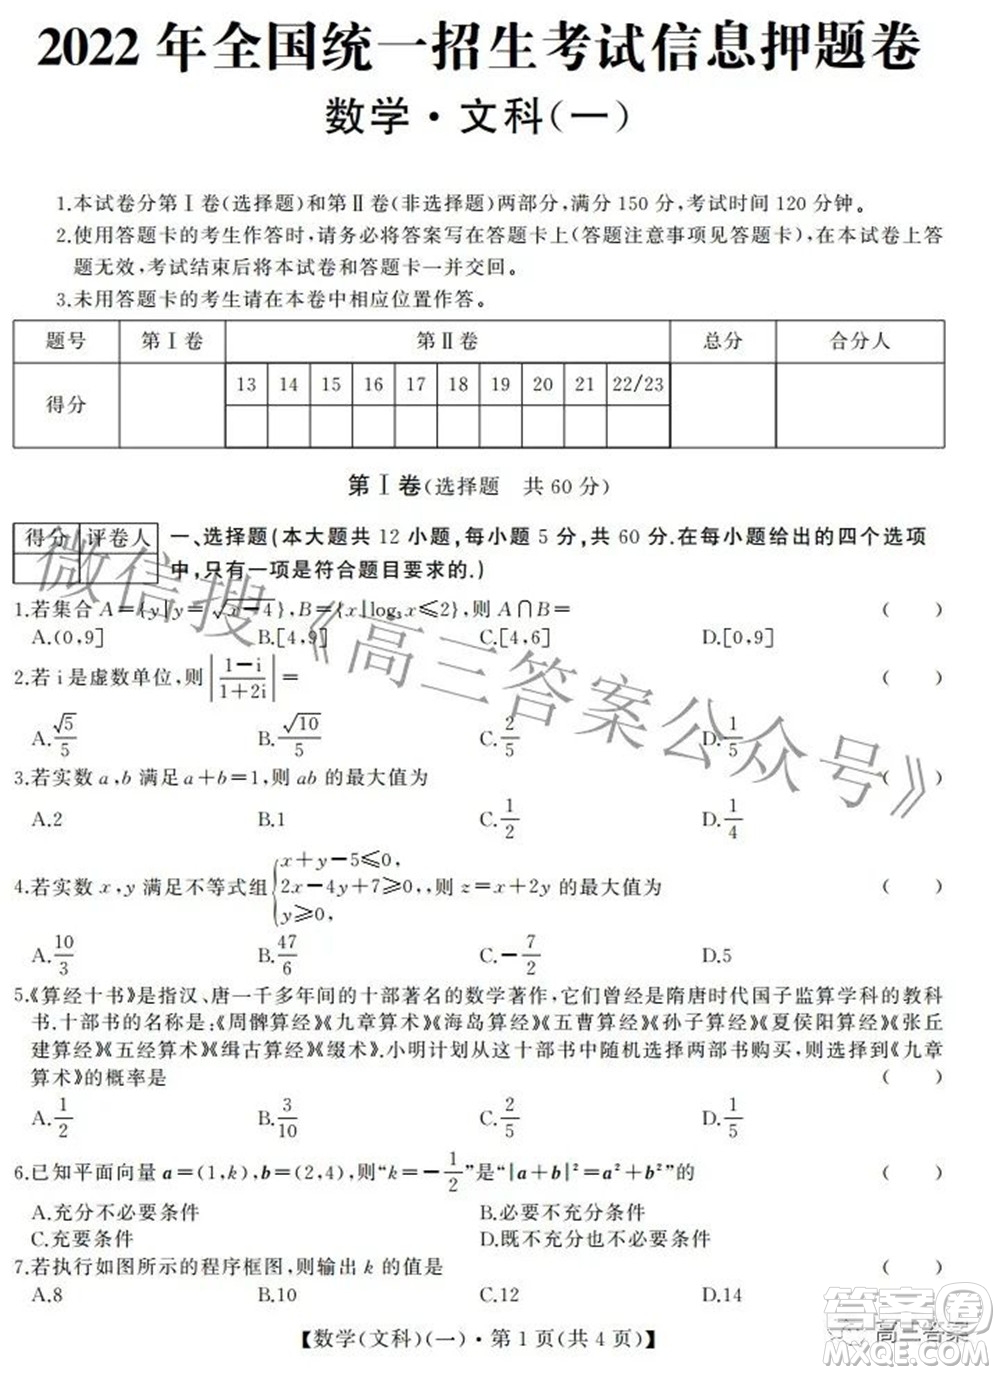 2022年全国统一招生考试信息押题卷
数学·文科(一)
1.本试卷分第Ⅰ卷(选择题)和第Ⅱ卷(非选择题)两部分,满分150分,考试时间120分钟。
2.使用答题卡的考生作答时,请务必将答案写在答题卡上(答题注意事项见答题卡),在本试卷上答
题无效,考试结束后将本试卷和答题卡一并交回。
3.未用答题卡的考生请在本卷中相应位置作答。
题号 第Ⅰ卷 第Ⅱ卷 总分 合分人
得分 13 14 15 16 17 18 19 20 21 22/23
第Ⅰ卷(选择题 共60分)
得分 评卷人
一、选择题(本大题共12小题,每小题5分,共60分.在每小题给出的四个选项
中,只有一项是符合题目要求的.)
1.若集合A={y|y=√(x-4)},B={x|log₃x≤2},则A∩B= ( )
A.(0,9] B.[4,9] C.[4,6] D.[0,9]
2.若i是虚数单位,则|(1-i)/(1+2i)|= ( )
A.√5/5 B.√10/5 C.2/5 D.1/5
3.若实数a,b满足a+b=1,则ab的最大值为 ( )
A.2 B.1 C.1/2 D.1/4
4.若实数x,y满足不等式组{x+y-5≤0, 2x-4y+7≥0, y≥0,,则z=x+2y的最大值为 ( )
A.10/3 B.47/6 C.-7/2 D.5
5.《算经十书》是指汉、唐一千多年间的十部著名的数学著作,它们曾经是隋唐时代国子监算学科的教科
书.十部书的名称是:《周髀算经》《九章算术》《海岛算经》《五曹算经》《孙子算经》《夏侯阳算经》《张丘
建算经》《五经算术》《缉古算经》《缀术》.小明计划从这十部书中随机选择两部书购买,则选择到《九章
算术》的概率是 ( )
A.1/2 B.3/10 C.2/5 D.1/5
6.已知平面向量a=(1,k),b=(2,4),则“k=-1/2”是“|a+b|²=a²+b²”的 ( )
A.充分不必要条件 B.必要不充分条件
C.充要条件 D.既不充分也不必要条件
7.若执行如图所示的程序框图,则输出k的值是 ( )
A.8 B.10 C.12 D.14
【数学(文科)(一)·第1页(共4页)】
微信搜《高三答案公众号》
答案卷
高三答案